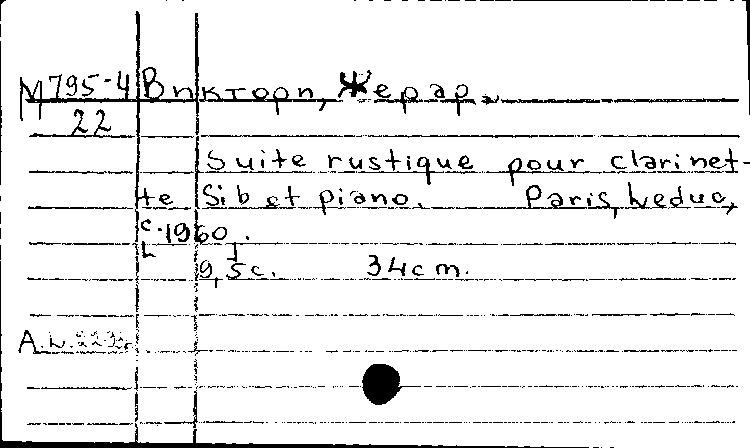 М 795-4 Виктори, Жерар.
22
Suite rustique pour clarinet-
te Sib et piano. Paris, Leduc,
c. 1960.
9, 5 c. 34 cm.
A.L.